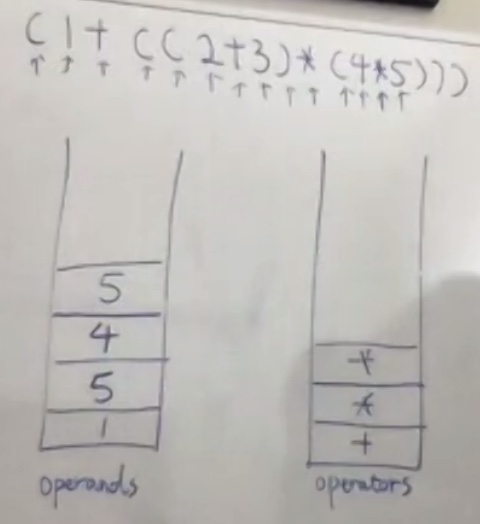 (1+((2+3)*(4*5)))
↑ ↑ ↑ ↑ ↑ ↑ ↑ ↑ ↑ ↑ ↑ ↑ ↑ ↑
5
4 *
5 *
1 +
operands operators